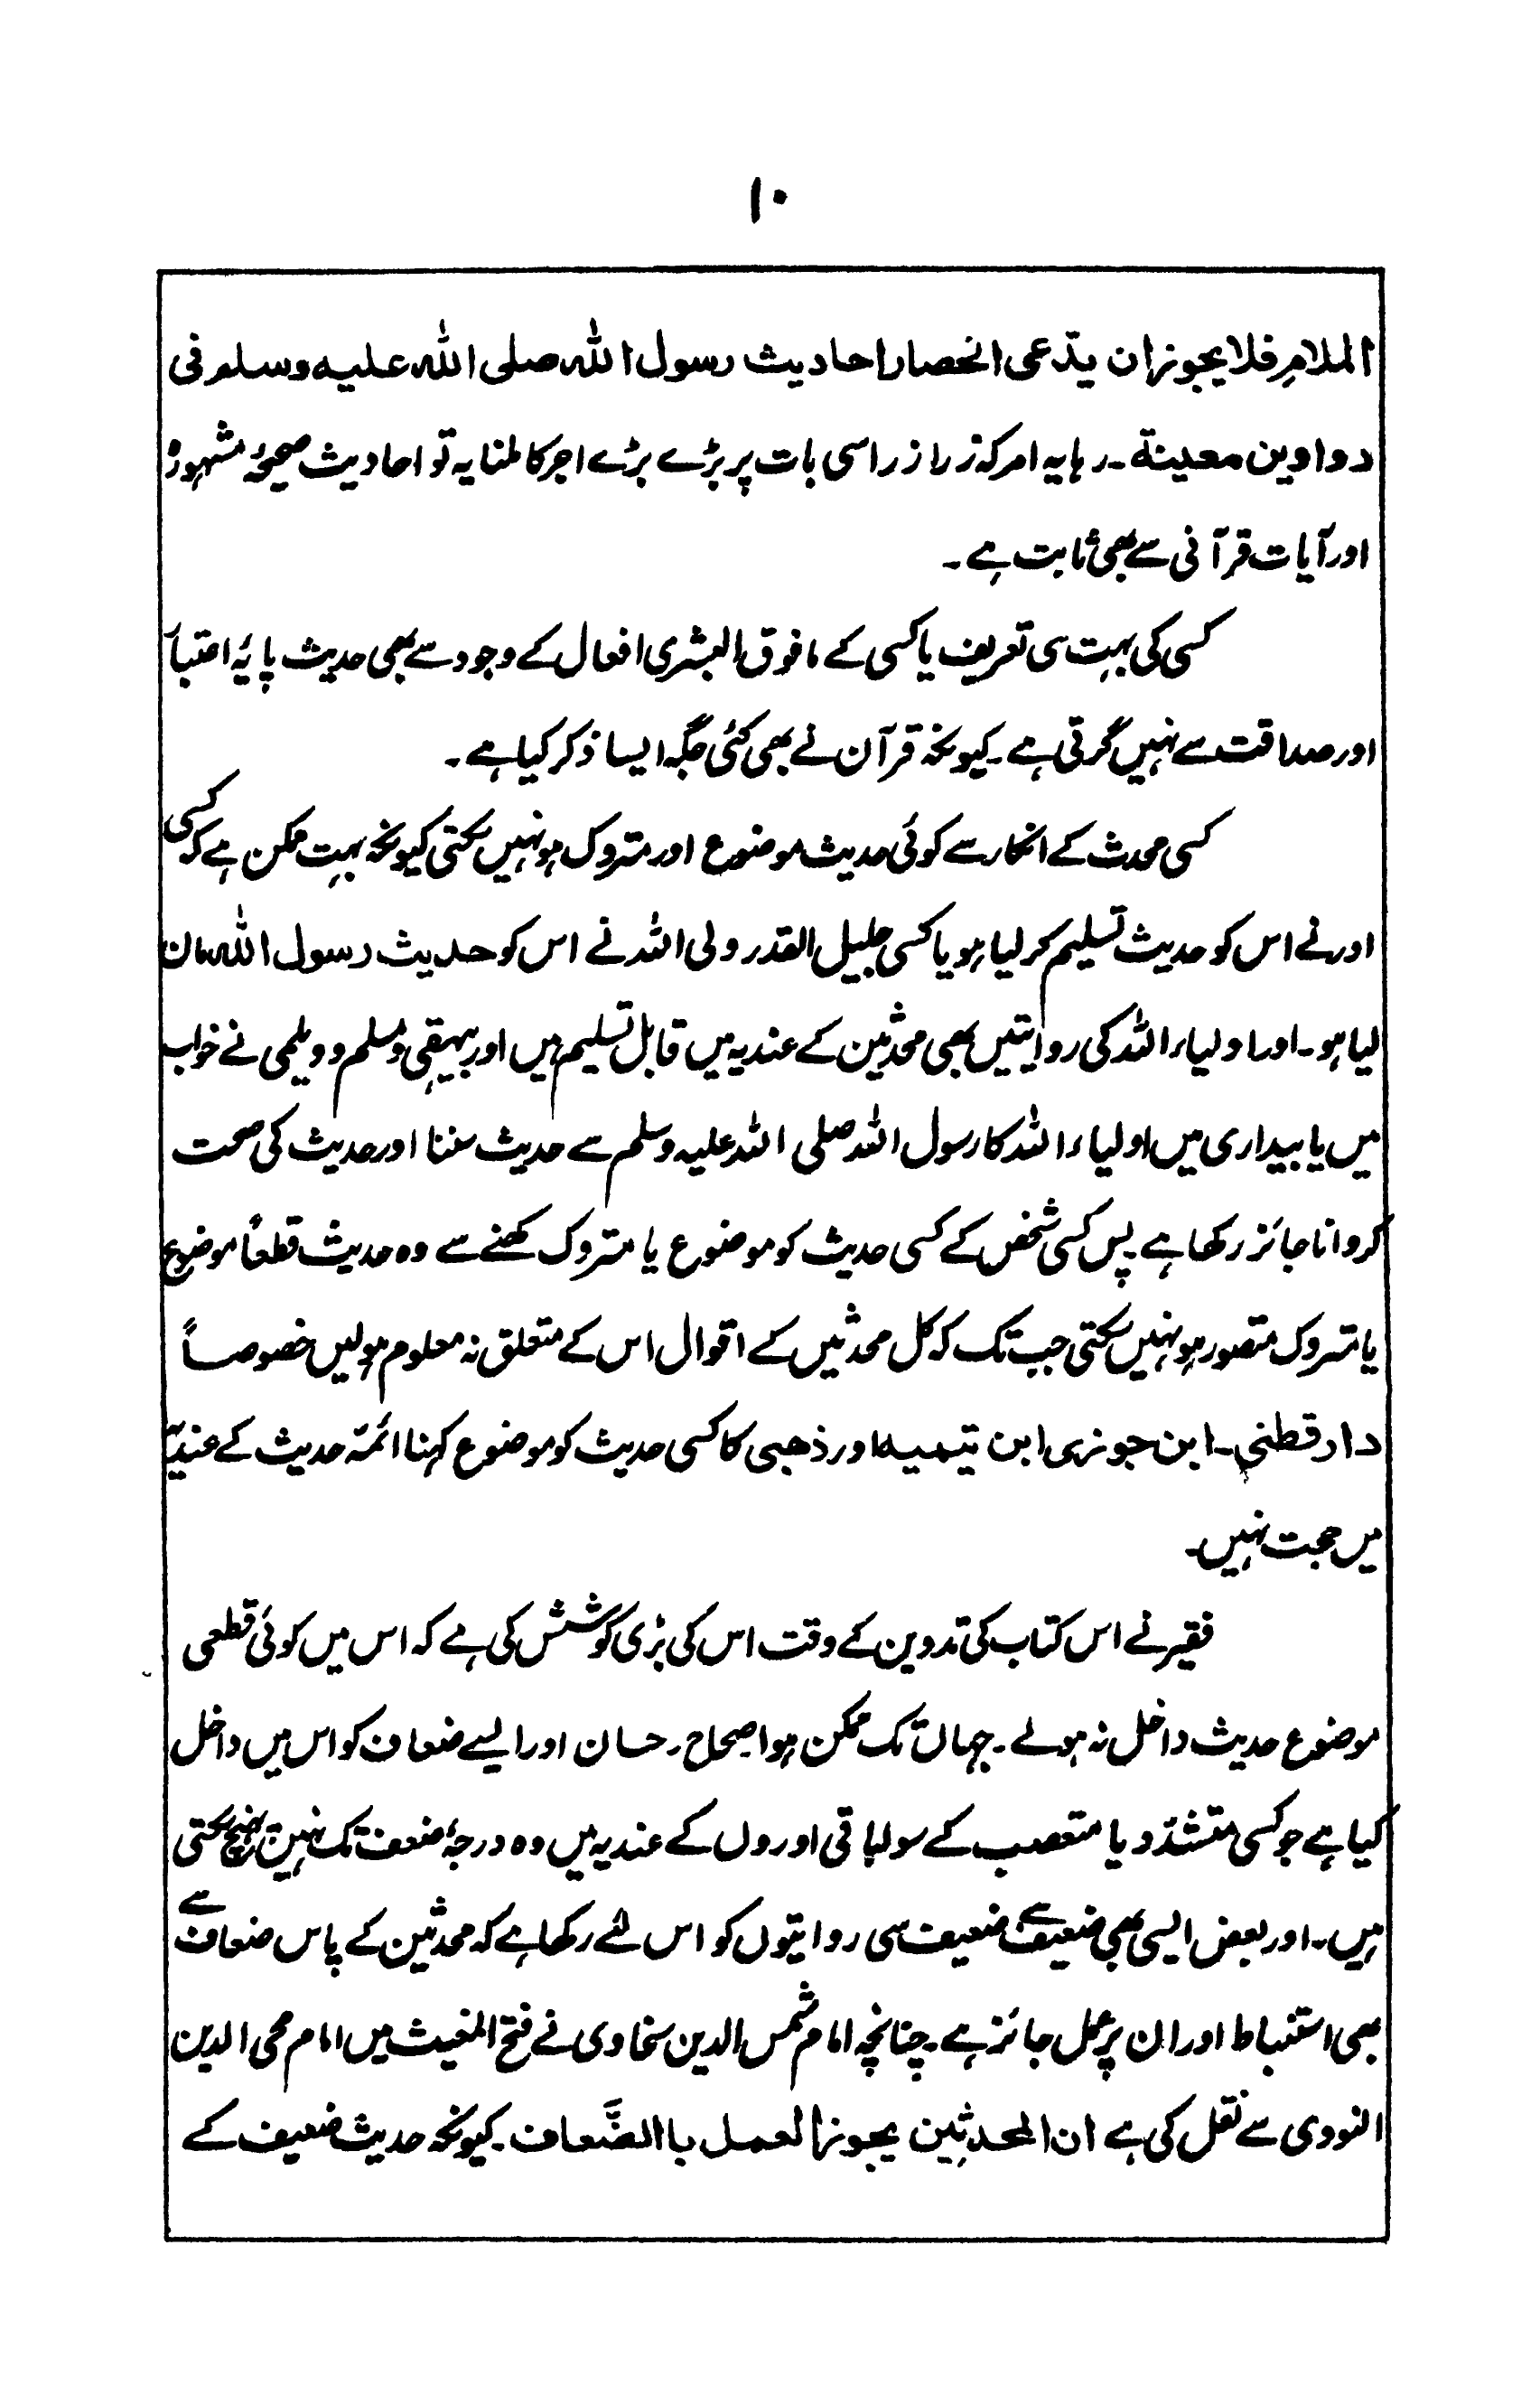 ۱۰
الملامر فلا یجوز ان یدّعی انحصار احادیث رسول اللہ صلی اللہ علیہ وسلم فی
دواوین معینة ۔ رہا یہ امر کہ ذرا ذراسی بات پر بڑے بڑے اجر کا ملنا یہ تو احادیث صحیحۂ مشہورۂ
اور آیات قرآنی سے بھی ثابت ہے ۔
کسی کی بہت سی تعریف یا کسی کے مافوق البشری افعال کے وجود سے بھی حدیث پایۂ اعتبار
اور صداقت سے نہیں گرتی ہے ۔ کیونکہ قرآن نے بھی کئی جگہ ایسا ذکر کیا ہے ۔
کسی محدث کے انکار سے کوئی حدیث موضوع اور متروک ہو نہیں سکتی کیونکہ بہت ممکن ہے کہ کسی
اور نے اس کو حدیث تسلیم کر لیا ہو یا کسی جلیل القدر ولی اللہ نے اس کو حدیث رسول اللہ مان
لیا ہو ۔ اور اولیاء اللہ کی روایتیں بھی محدثین کے عندیہ میں قابل تسلیم ہیں اور بیہقی و مسلم و دیلمی نے خواب
میں یا بیداری میں اولیاء اللہ کا رسول اللہ صلی اللہ علیہ وسلم سے حدیث سننا اور حدیث کی صحت
کروانا جائز رکھا ہے پس کسی شخص کے کسی حدیث کو موضوع یا متروک کہنے سے وہ حدیث قطعاً موضوع
یا متروک متصور ہو نہیں سکتی جب تک کہ کل محدثیں کے اقوال اس کے متعلق نہ معلوم ہولیں خصوصاً
دار قطنی ۔ ابن جوزی ابن تیمیہ اور ذھبی کا کسی حدیث کو موضوع کہنا ائمۂ حدیث کے عندیۂ
میں حجت نہیں۔
فقیر نے اس کتاب کی تدوین کے وقت اس کی بڑی کوشش کی ہے کہ اس میں کوئی قطعی
موضوع حدیث داخل نہ ہولے ۔ جہاں تک ممکن ہوا صحاح ۔ حسان اور ایسے ضعاف کو اس میں داخل
کیا ہے جو کسی متشدّد یا متعصب کے سوا باقی اوروں کے عندیہ میں وہ درجۂ ضعف تک نہیں پہنچ سکتی
ہیں ۔ اور بعض ایسی بھی ضعیف سے ضعیف سی روایتوں کو اس لئے رکھا ہے کہ محدثین کے پاس ضعاف سے
بھی استنباط اور ان پر عمل جائز ہے ۔ چنانچہ امام شمس الدین سخاوی نے فتح المغیث میں امام محی الدین
النووی سے نقل کی ہے ان المحدثِین یجوز العمل باالضَّعاف ۔ کیونکہ حدیث ضعیف کے